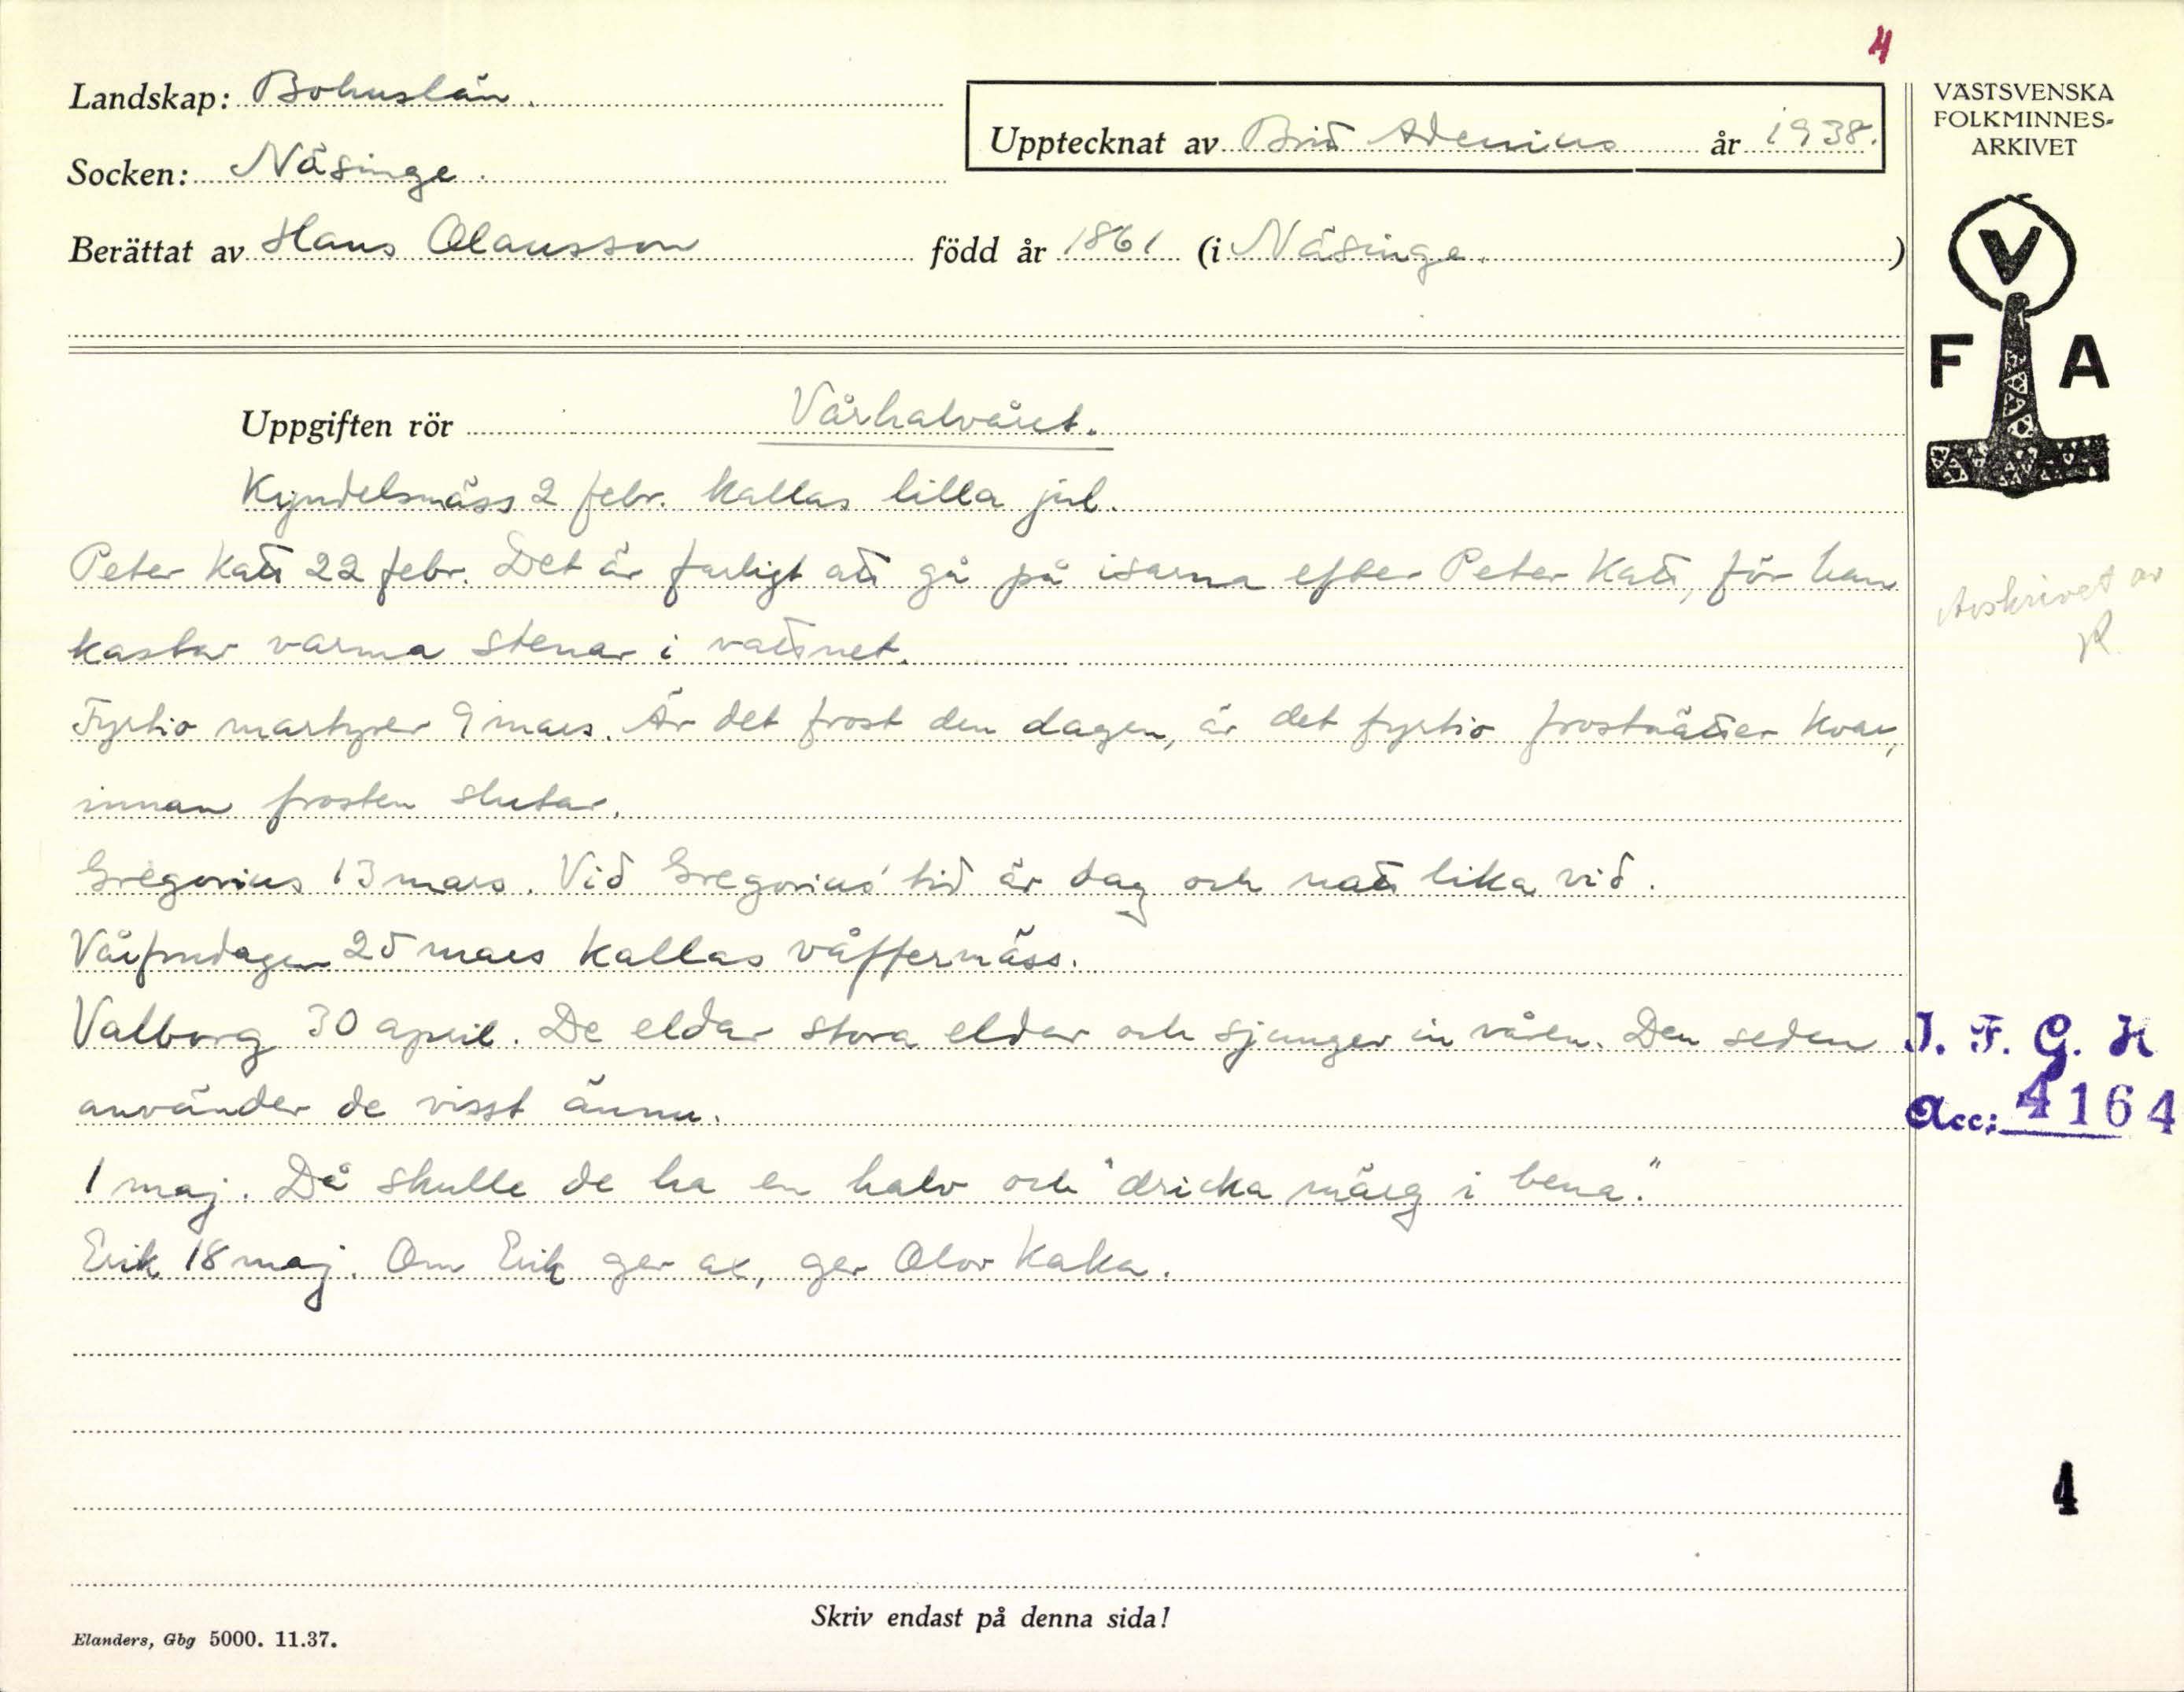 4
Landskap: Bohuslän.
Upptecknat av Brit Adenius år 1938.
VÄSTSVENSKA
FOLKMINNES-
ARKIVET
Socken: Näsinge.
Berättat av Hans Olausson född år 1861 (i Näsinge.)
V
F A
Uppgiften rör Vårhalvåret.
Kyndelsmäss 2 febr. kallas lilla jul.
Peter Katt 22 febr. Det är farligt att gå på isarna efter Peter Katt, för han
kastar varma stenar i vattnet.
Avskrivet av
R
Fyrtio martyrer 9 mars. Är det frost den dagen, är det fyrtio frostnätter kvar,
innan frosten slutar.
Gregorius 13 mars. Vid Gregorius' tid är dag och natt lika vid.
Vårfrudagen 25 mars kallas våffermäss.
Valborg 30 april. De eldar stora eldar och sjunger in våren. Den seden
använder de visst ännu.
I. F. G. H
Acc: 4164
1 maj. Då skulle de ha en halv och "dricka märg i bena."
Erik 18 maj. Om Erik ger ax, ger Olov kaka.
4
Skriv endast på denna sida!
Elanders, Gbg 5000. 11.37.